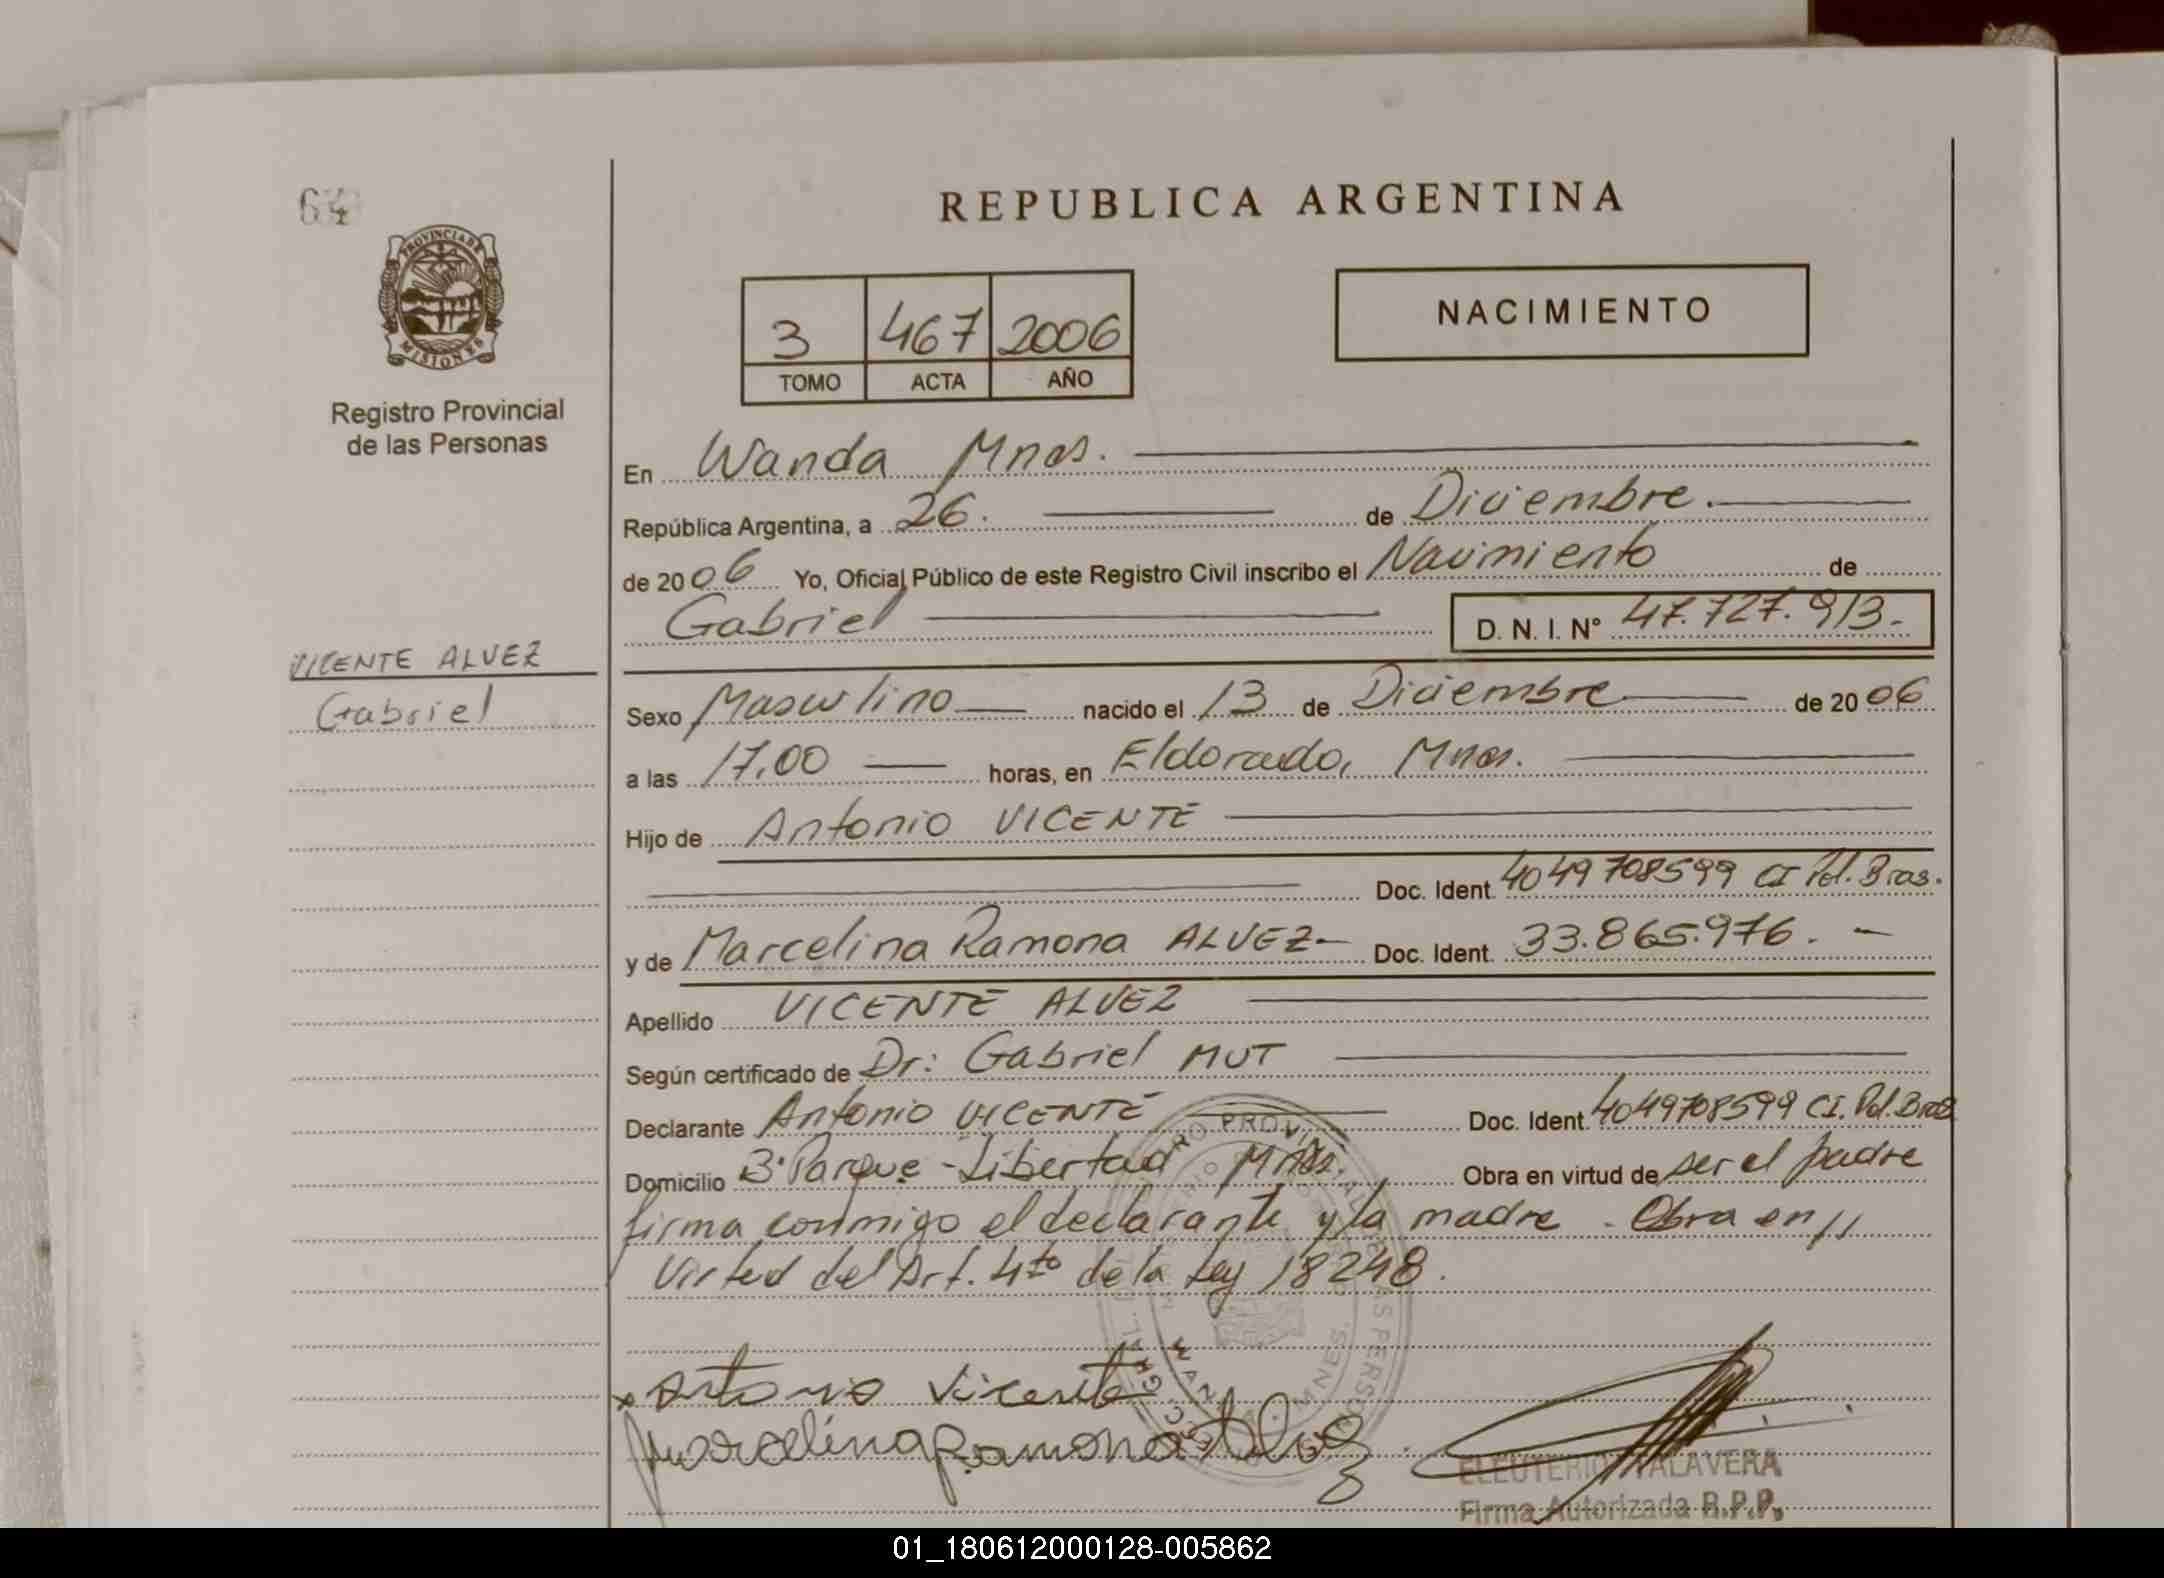 64
REPUBLICA ARGENTINA
PROVINCIA DE
MISIONES
Registro Provincial
de las Personas
3 467 2006
TOMO ACTA AÑO
NACIMIENTO
En Wanda Mnes.
República Argentina, a 26. de Diciembre.
de 2006 Yo, Oficial Público de este Registro Civil inscribo el Nacimiento de
Gabriel D. N. I. N° 47.727.913.-
VICENTE ALVEZ
Gabriel
Sexo Masculino nacido el 13 de Diciembre de 2006
a las 17,00 horas, en Eldorado, Mnes.
Hijo de Antonio VICENTE
Doc. Ident. 4049708599 CI Pol. Bras.
y de Marcelina Ramona ALVEZ- Doc. Ident. 33.865.976. -
Apellido VICENTE ALVEZ
Según certificado de Dr: Gabriel MUT
Declarante Antonio VICENTE Doc. Ident. 4049708599 CI. Pol. Bras
Domicilio B° Parque - Libertad Mnes. Obra en virtud de ser el padre
firma conmigo el declarante y la madre. Obra en //
Virtud del Art. 4to de la Ley 18248.
x Antonio Vicente
Marcelina Ramona Alvez
ELEUTERIO TALAVERA
Firma Autorizada R.P.P.
01_180612000128-005862